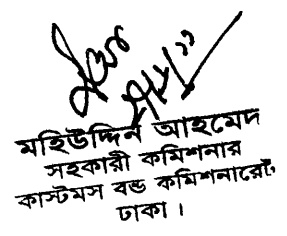 মহিউদ্দিন আহমেদ
সহকারী কমিশনার
কাস্টমস বন্ড কমিশনারেট,
ঢাকা ।